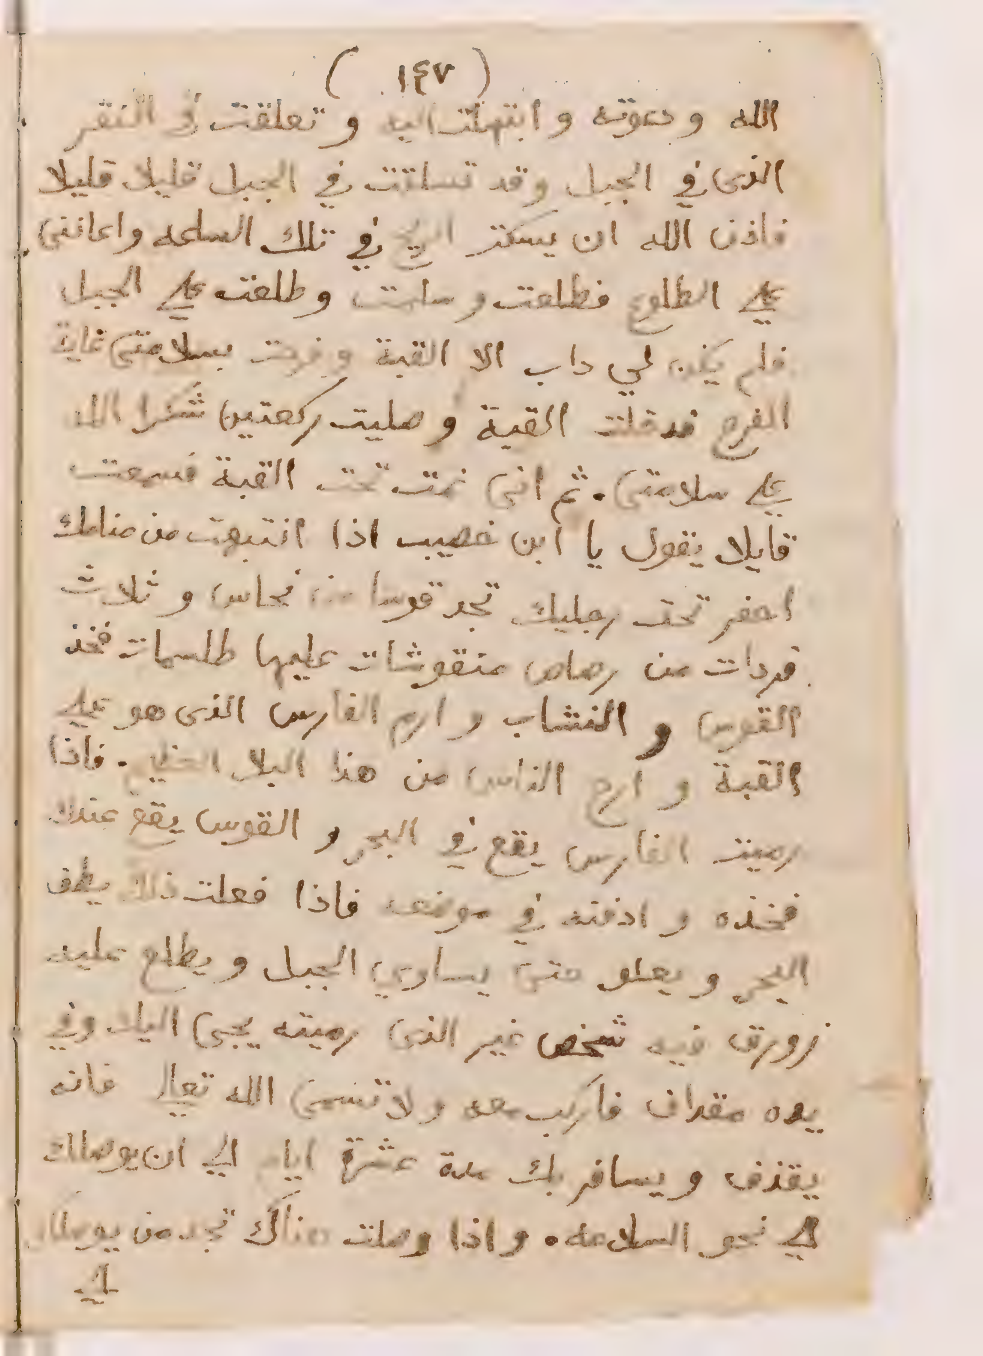 ( ١٤٧ )
الله ودعوته وابتهلت اليه وتعلقت في النقر
الذى في الجبل وقد تسلقت في الجبل قليلا قليلا
فاذن الله ان يسكن الريح في تلك الساعه واعاننى
على الطلوع فطلعت وسلمت وطلعت على الجبل
فلم يكن لي داب الا القبة وفرحت بسلامتى غاية
الفرح فدخلت القبة وصليت ركعتين شكرا لله
على سلامتى. ثم انى نمت تحت القبة فسمعت
قايلا يقول يا ابن خصيب اذا انتبهت من منامك
احفر تحت رجليك تجد قوسا من نحاس وثلاث
فردات من رصاص منقوشات عليها طلسمات فخذ
القوس والنشاب وارم الفارس الذى هو على
القبة وارح الناس من هذا البلا العظيم. فاذا
رميت الفارس يقع في البحر والقوس يقع عندك
فخذه وادفنه في موضعه فاذا فعلت ذلك يطف
البحر ويعلو حتى يساوي الجبل ويطلع عليه
زورق فيه شخص غير الذى رميته يجى اليك وفي
يده مقداف فاركب معه ولا تسمى الله تعالى فانه
يقذف ويسافر بك مدة عشرة ايام الى ان يوصلك
الى نحو السلامه. واذا وصلت هناك تجد من يوصلك
الى